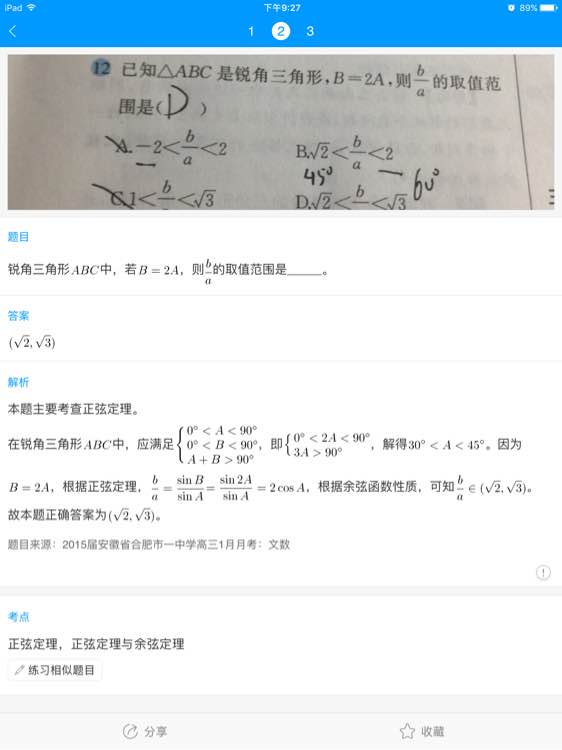 iPad 下午9:27 89%
1 2 3
12 已知△ABC 是锐角三角形,B=2A,则b/a的取值范
围是(D)
A.-2<b/a<2 B.√2<b/a<2
45° 60°
C.1<b/a<√3 D.√2<b/a<√3
题目
锐角三角形ABC中，若B = 2A，则b/a的取值范围是_____。
答案
(√2,√3)
解析
本题主要考查正弦定理。
在锐角三角形ABC中，应满足{0° < A < 90° 0° < B < 90° A + B > 90°，即{0° < 2A < 90° 3A > 90°，解得30° < A < 45°。因为
B = 2A，根据正弦定理，b/a = sin B/sin A = sin 2A/sin A = 2 cos A，根据余弦函数性质，可知b/a ∈ (√2,√3)。
故本题正确答案为(√2,√3)。
题目来源：2015届安徽省合肥市一中学高三1月月考：文数
考点
正弦定理，正弦定理与余弦定理
练习相似题目
分享 收藏